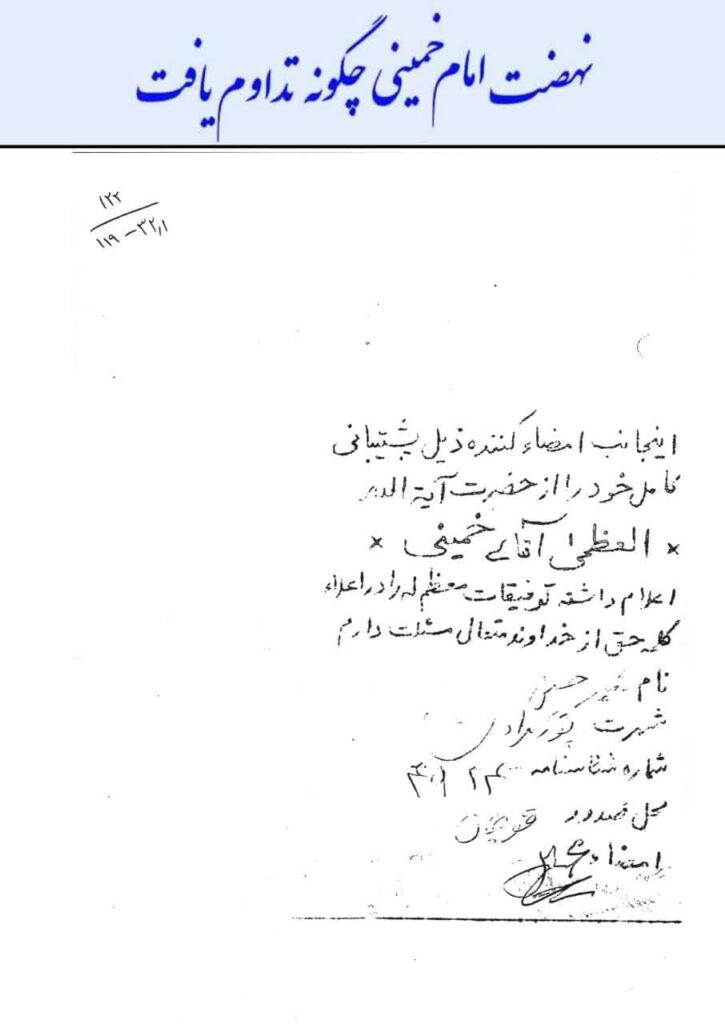 نهضت امام خمینی چگونه تداوم یافت
۱۲۲
۱۱۹-۳۲٫۱
اینجانب امضاء کننده ذیل پشتیبانی
کامل خود را از حضرت آیة الله
× العظمی آقای خمینی ×
اعلام داشته توفیقات معظم له را در اعلاء
کلمه حق از خداوند متعال مسئلت دارم
نام
شهرت
شماره شناسنامه
محل صدور قوچان
امضاء